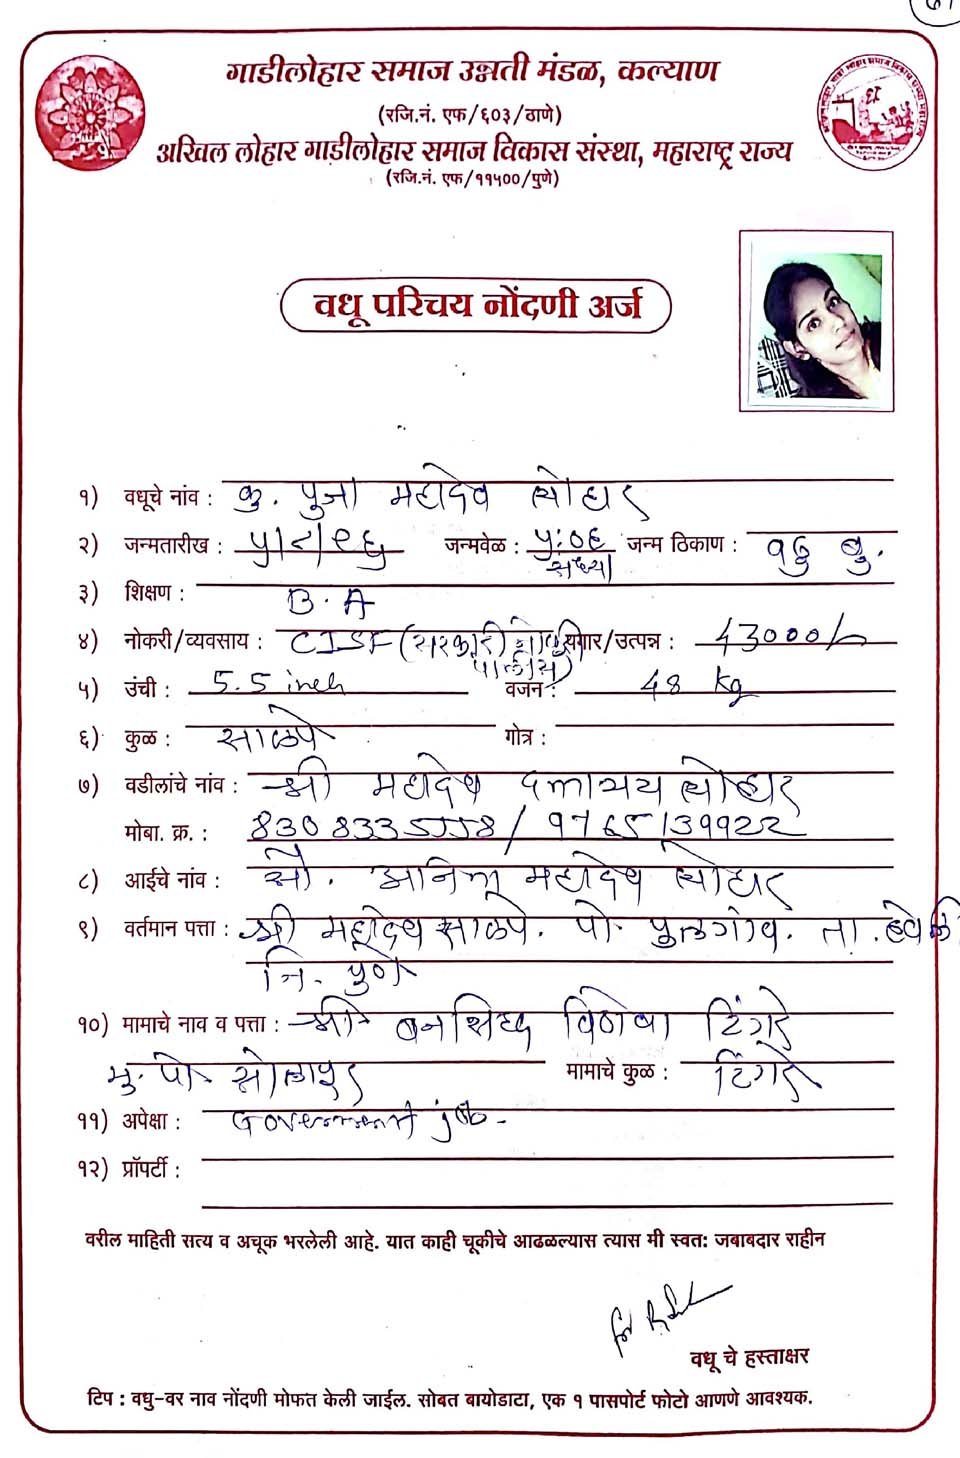 गाडीलोहार समाज उन्नती मंडळ, कल्याण
(रजि.नं. एफ/६०३/ठाणे)
अखिल लोहार गाडीलोहार समाज विकास संस्था, महाराष्ट्र राज्य
(रजि.नं. एफ/११५००/पुणे)
वधू परिचय नोंदणी अर्ज
१) वधूचे नांव : कु. पुजा महादेव लोहार
२) जन्मतारीख : ५/८/९६ जन्मवेळ : ५:०६ संध्या जन्म ठिकाण : वढु बु.
३) शिक्षण : B. A
४) नोकरी/व्यवसाय : CISF (सरकारी पोलीस) पगार/उत्पन्न : 43000/-
५) उंची : 5.5 inch वजन : 48 kg
६) कुळ : साळपे गोत्र :
७) वडीलांचे नांव : श्री महादेव दत्तात्रय लोहार
मोबा. क्र. : 8308335558 / 9765139922
८) आईचे नांव : सौ. अनिता महादेव लोहार
९) वर्तमान पत्ता : श्री महादेव साळपे. पो. फुलगांव. ता. हवेली
जि. पुणे
१०) मामाचे नाव व पत्ता : श्री बनसिध्द विठोबा टिंगरे
मु. पो. सोलापुर मामाचे कुळ : टिंगरे
११) अपेक्षा : Government job-
१२) प्रॉपर्टी :
वरील माहिती सत्य व अचूक भरलेली आहे. यात काही चूकीचे आढळल्यास त्यास मी स्वत: जबाबदार राहीन
वधू चे हस्ताक्षर
टिप : वधु-वर नाव नोंदणी मोफत केली जाईल. सोबत बायोडाटा, एक १ पासपोर्ट फोटो आणणे आवश्यक.